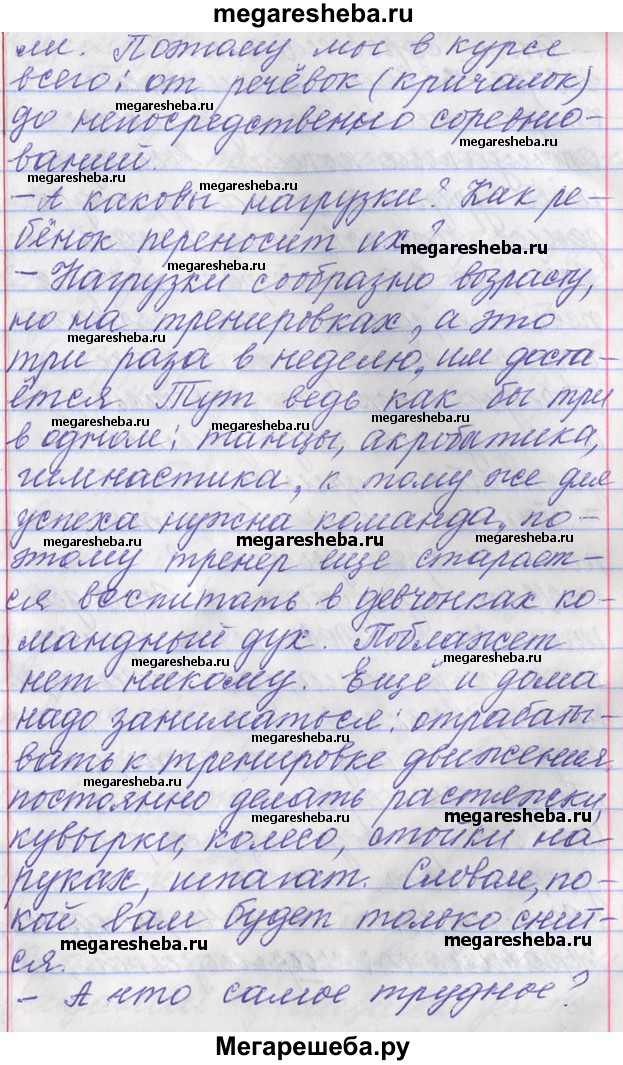 megaresheba.ru
ли. Поэтому мы в курсе
всего: от речёвок (кричалок)
megaresheba.ru
до непосредственно соревно-
ваний.
megaresheba.ru
megaresheba.ru
- А каковы нагрузки? Как ре-
бёнок переносит их?
megaresheba.ru
megaresheba.ru
- Нагрузки сообразно возрасту,
но на тренировках, а это
три раза в неделю, им доста-
ётся. Тут ведь как бы три
megaresheba.ru
megaresheba.ru
в одном: танцы, акробатика,
гимнастика, к тому же для
успеха нужна команда, по-
megaresheba.ru
megaresheba.ru
megaresheba.ru
этому тренер ещё старает-
ся воспитать в девчонках ко-
мандный дух. Поблажет
megaresheba.ru
megaresheba.ru
нет никому. Ещё и дома
надо заниматься: отрабаты-
megaresheba.ru
вать к тренировке движения,
megaresheba.ru
постоянно делать растяжки,
megaresheba.ru
megaresheba.ru
кувырки, колесо, стойки на
руках, шпагат. Словом, по-
кой вам будет только снит-
megaresheba.ru
megaresheba.ru
ся.
- А что самое трудное?
Мегарешеба.ру